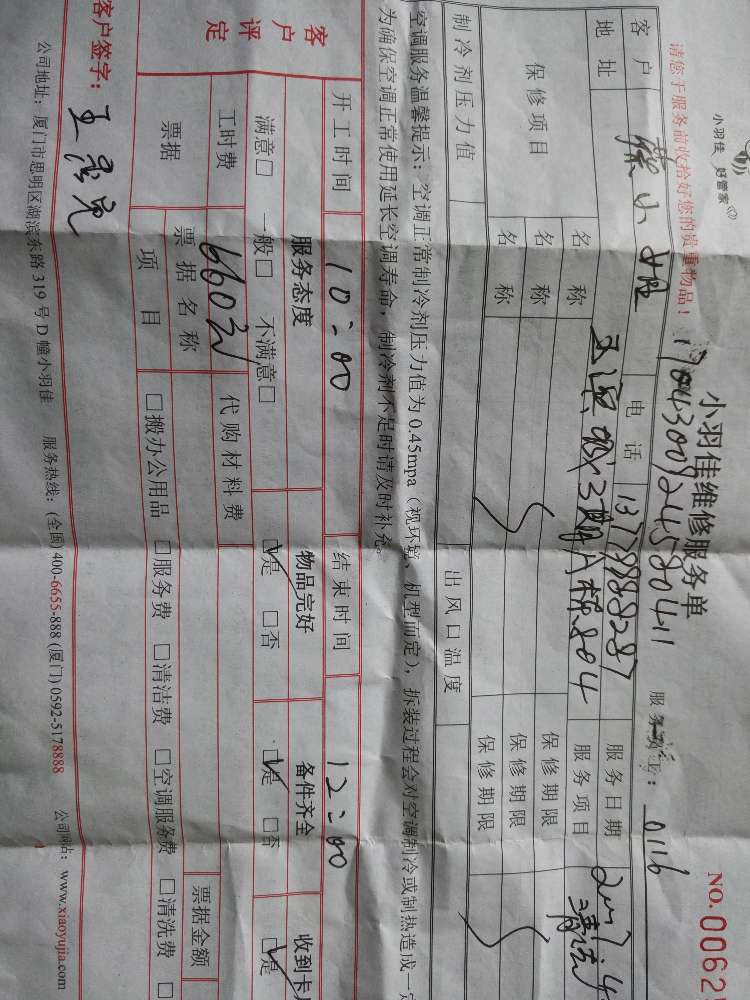 小羽佳 好管家
小羽佳维修服务单
NO. 0062
请您于服务前收拾好您的贵重物品！
1704300924580411
0116
客户 熊小姐 电话 服务日期
地址 服务项目 清洁
保修项目 名称 保修期限
名称 保修期限
名称 保修期限
制冷剂压力值 出风口温度
空调服务温馨提示：空调正常制冷剂压力值为 0.45mpa（视环境、机型而定），拆装过程会对空调制冷或制热造成一定
为确保空调正常使用延长空调寿命，制冷剂不足时请及时补充。
开工时间 10:00 结束时间 12:00
客户评定 服务态度 物品完好 备件齐全 收到卡片
满意□ 一般□ 不满意□ □是 □否 □是 □否 □是
工时费 660元 代购材料费
票据 票据名称 票据金额
项目 □搬办公用品 □服务费 □清洁费 □空调服务费 □清洗费 □
客户签字：
公司地址：厦门市思明区湖滨东路 319 号 D 幢小羽佳 服务热线：(全国) 400-6655-888 (厦门) 0592-5178888 公司网站：www.xiaoyujia.com